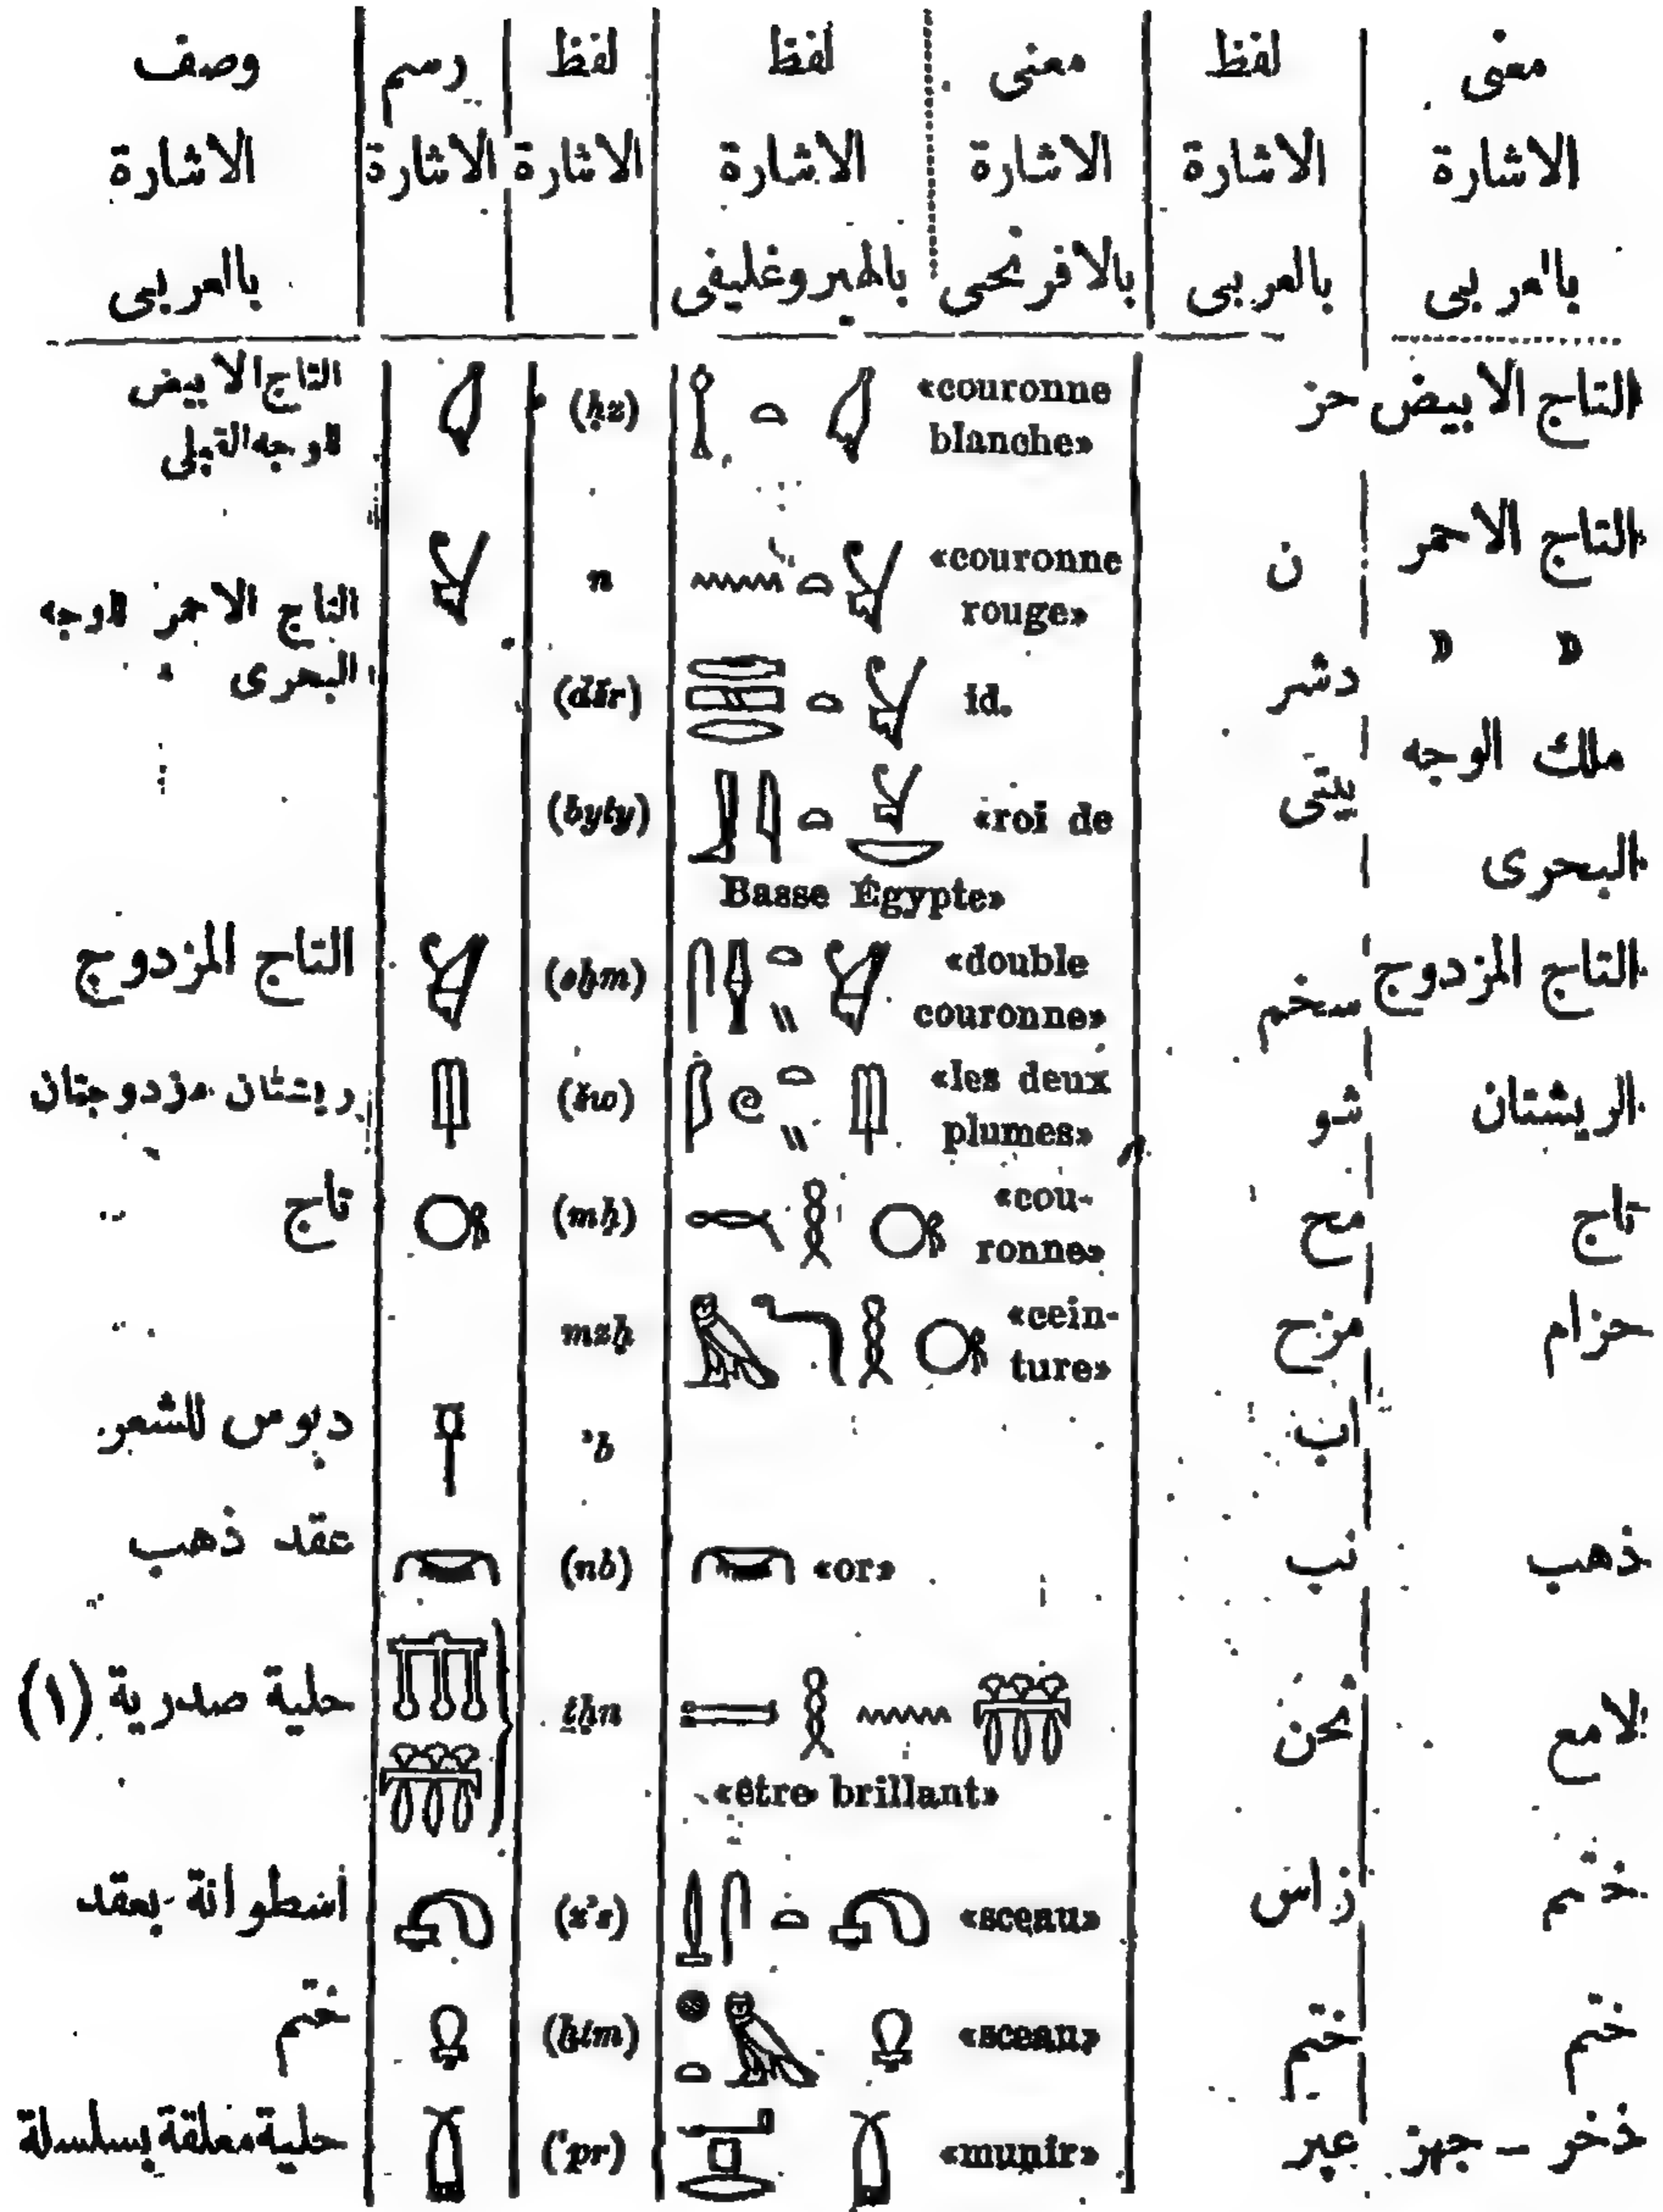 معنى | لفظ | معنى | لفظ | لفظ | رسم | وصف
الاشارة | الاشارة | الاشارة | الاشارة | الاشارة | الاشارة | الاشارة
بالعربى | بالعربى | بالافرنجى | بالهيروغليفى | بالعربى
التاج الابيض | حز | «couronne blanche» | (ḥz) | التاج الابيض للوجه القبلى
التاج الاحمر | ن | «couronne rouge» | n | التاج الاحمر للوجه البحرى
» » | دشر | id. | (dšr)
ملك الوجه البحرى | بيتى | «roi de Basse Égypte» | (byty)
التاج المزدوج | سخم | «double couronne» | (sḫm) | التاج المزدوج
الريشتان | شو | «les deux plumes» | (šw) | ريشتان مزدوجتان
تاج | مح | «cou-ronne» | (mḥ) | تاج
حزام | مزح | «cein-ture» | mzḥ
اب | ʾb | دبوس للشعر
ذهب | نب | «or» | (nb) | عقد ذهب
لامع | ثحن | «être brillant» | ṯḥn | حلية صدرية (١)
ختم | زاس | «sceau» | (zʾs) | اسطوانة بعقد
ختم | ختم | «sceau» | (ḫtm) | ختم
ذخر – جهز | عپر | «munir» | (ʿpr) | حلية معلقة بسلسلة